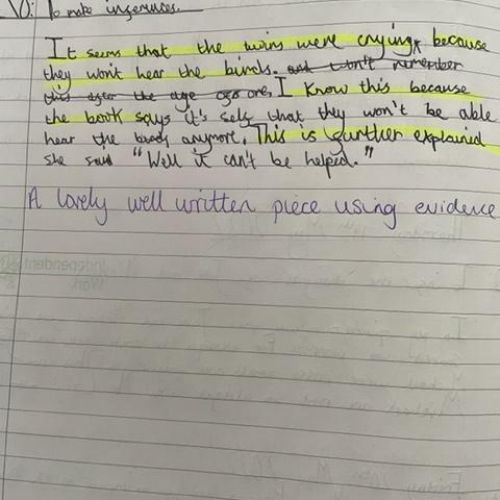 LO: To make inferences.
It seems that the twins were crying, because
they won't hear the birds. and won't remember
this after the age one, I know this because
the book says it's self that they won't be able
hear the birds anymore. This is further explained
she said "Well it can't be helped."
A lovely well written piece using evidence